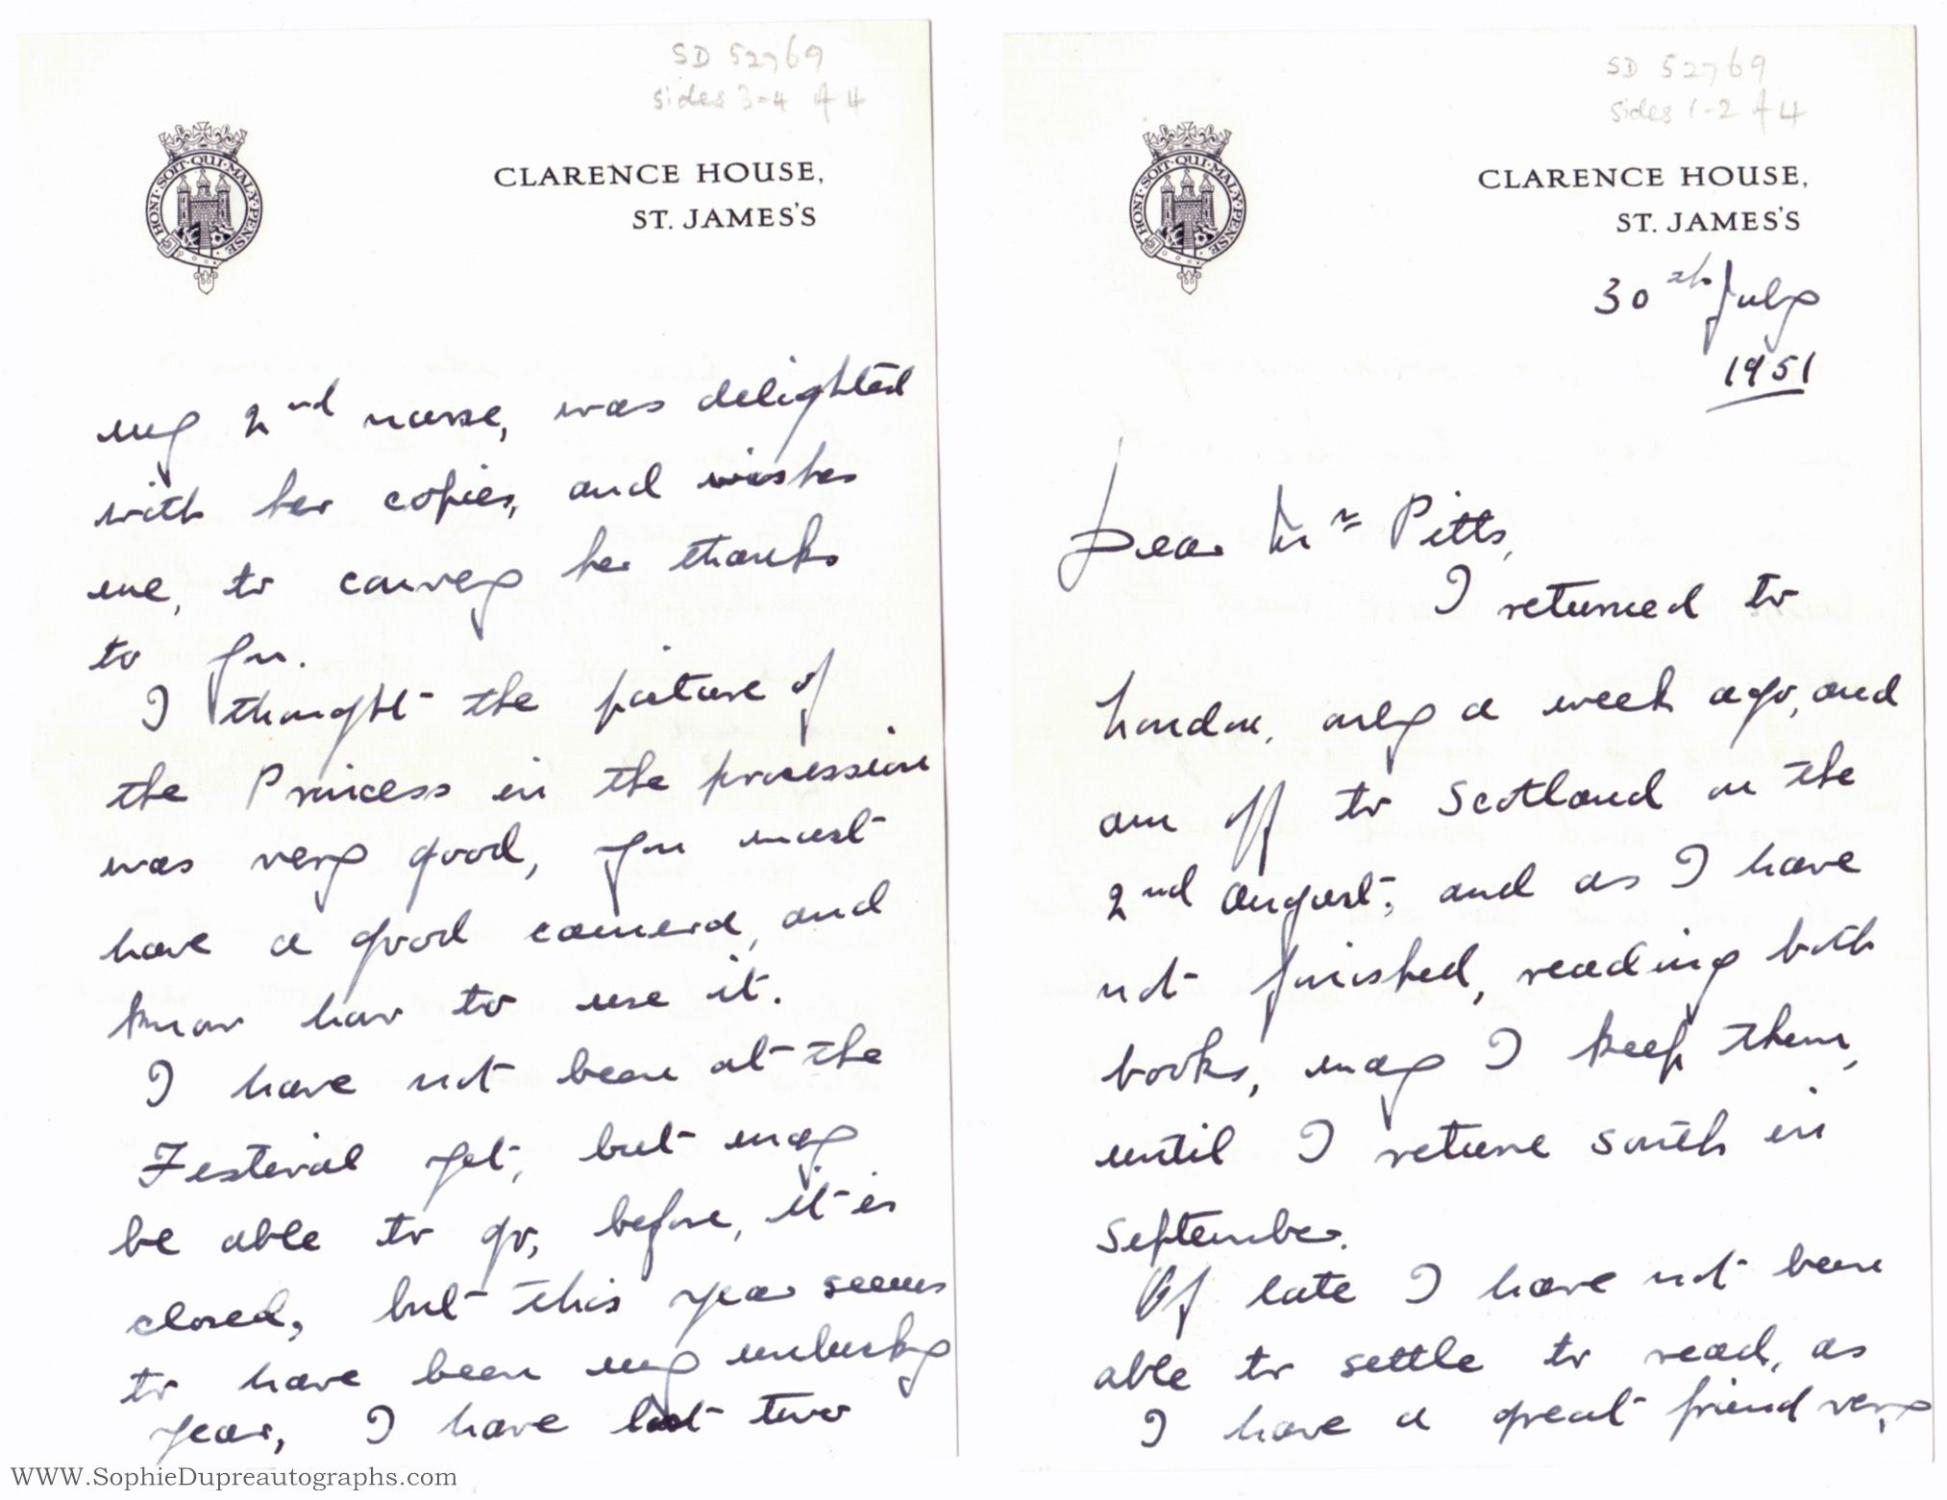 SD 52769
sides 3-4 of 4
HONI·SOIT·QUI·MAL·Y·PENSE
CLARENCE HOUSE,
ST. JAMES'S
my 2nd nurse, was delighted
with her copies, and wishes
me, to convey her thanks
to you.
I thought the picture of
the Princess in the procession
was very good, you must
have a good camera, and
know how to use it.
I have not been at the
Festival yet, but may
be able to go, before, it is
closed, but this year seems
to have been my unlucky
year, I have lost two
SD 52769
sides 1-2 of 4
HONI·SOIT·QUI·MAL·Y·PENSE
CLARENCE HOUSE,
ST. JAMES'S
30th July
1951
Dear Mr Pitts,
I returned to
London, only a week ago, and
am off to Scotland on the
2nd August, and as I have
not finished, reading both
books, may I keep them,
until I return south in
September.
Of late I have not been
able to settle to read, as
I have a great friend very
WWW.SophieDupreautographs.com